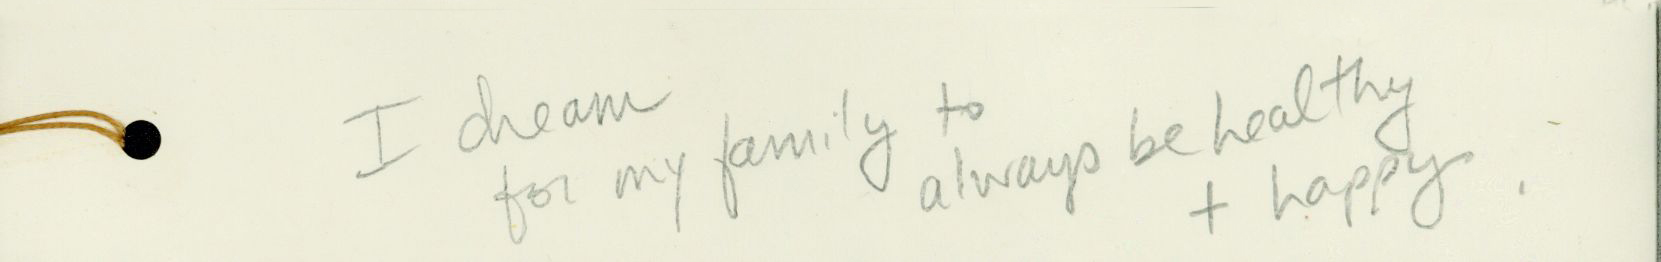 I dream
for my family to
always be healthy
+ happy.